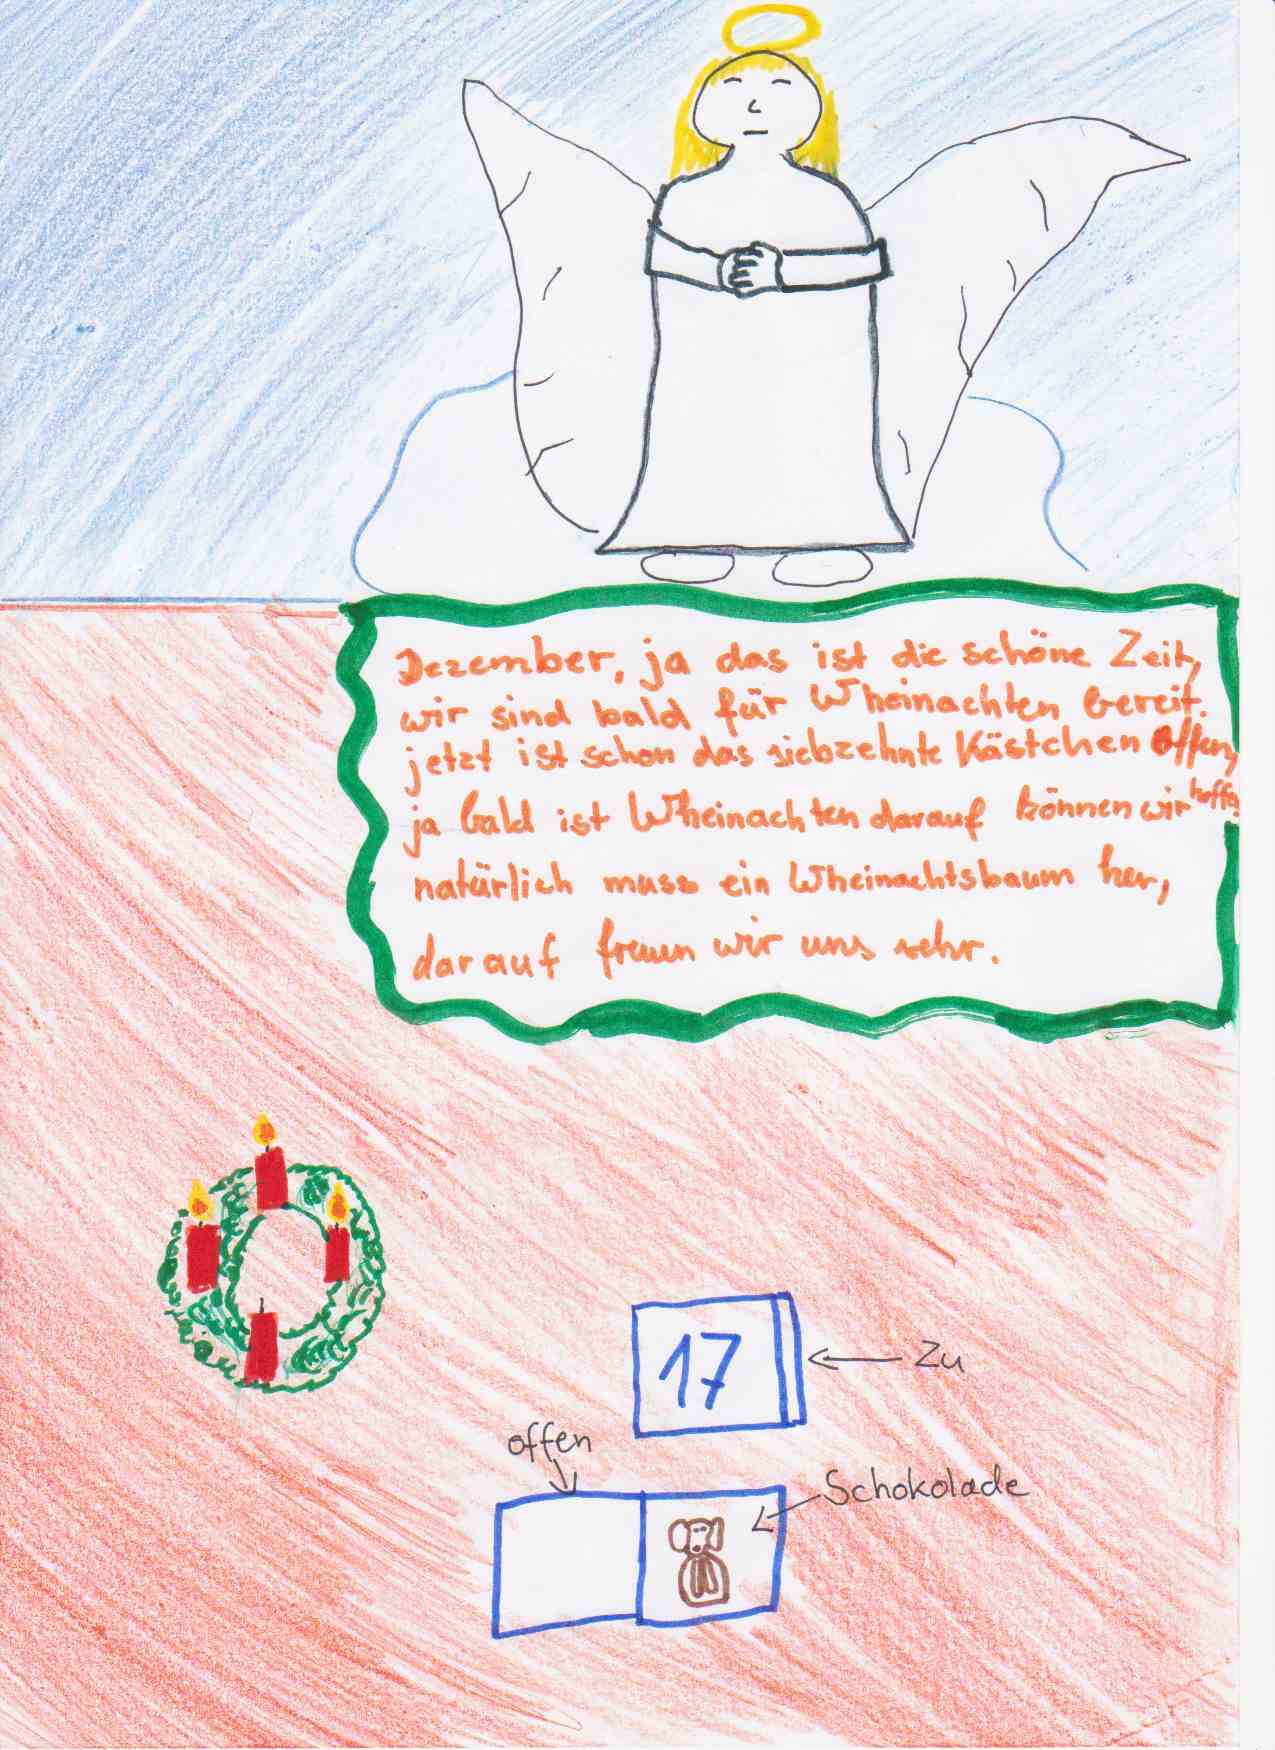 Dezember, ja das ist die schöne Zeit,
wir sind bald für Wheinachten bereit.
jetzt ist schon das siebzehnte Kästchen offen,
ja bald ist Wheinachten darauf können wir hoffen.
natürlich muss ein Wheinachtsbaum her,
darauf freuen wir uns sehr.
17
Zu
offen
Schokolade